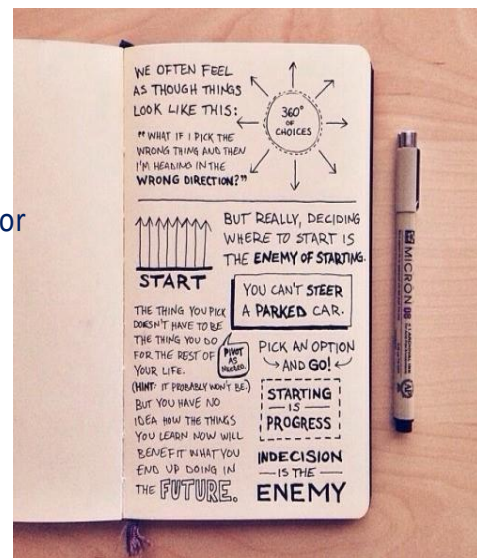 or
WE OFTEN FEEL
AS THOUGH THINGS
LOOK LIKE THIS:
"WHAT IF I PICK THE
WRONG THING AND THEN
I'M HEADING IN THE
WRONG DIRECTION?"
360°
OF
CHOICES
START
BUT REALLY, DECIDING
WHERE TO START IS
THE ENEMY OF STARTING.
YOU CAN'T STEER
A PARKED CAR.
THE THING YOU PICK
DOESN'T HAVE TO BE
THE THING YOU DO
FOR THE REST OF
YOUR LIFE.
(HINT: IT PROBABLY WON'T BE.)
BUT YOU HAVE NO
IDEA HOW THE THINGS
YOU LEARN NOW WILL
BENEFIT WHAT YOU
END UP DOING IN
THE FUTURE.
PIVOT
AS
NEEDED.
PICK AN OPTION
AND GO!
STARTING
IS
PROGRESS
INDECISION
IS THE
ENEMY
MICRON 08